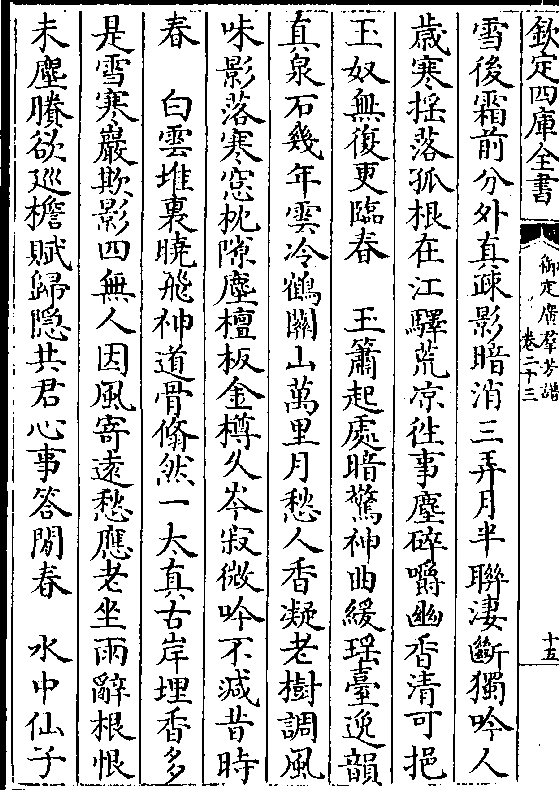 欽定四庫全書
御定廣羣芳譜
卷二十三
十五
雪後霜前分外真疎影暗消三弄月半聯淒斷獨吟人
歳寒揺落孤根在江驛荒凉徃事塵碎嚼幽香清可挹
玉奴無復更臨春　玉簫起處暗驚神曲緩瑶臺逸韻
真泉石幾年雲冷鶴關山萬里月愁人香凝老樹調風
味影落寒窓枕隙塵檀板金樽久岑寂微吟不減昔時
春　白雲堆裏曉飛神道骨翛然一太真古岸埋香多
是雪寒巖欺影四無人因風寄遠愁應老坐雨辭根恨
未塵賸欲廵檐賦歸隠共君心事答閒春　水中仙子